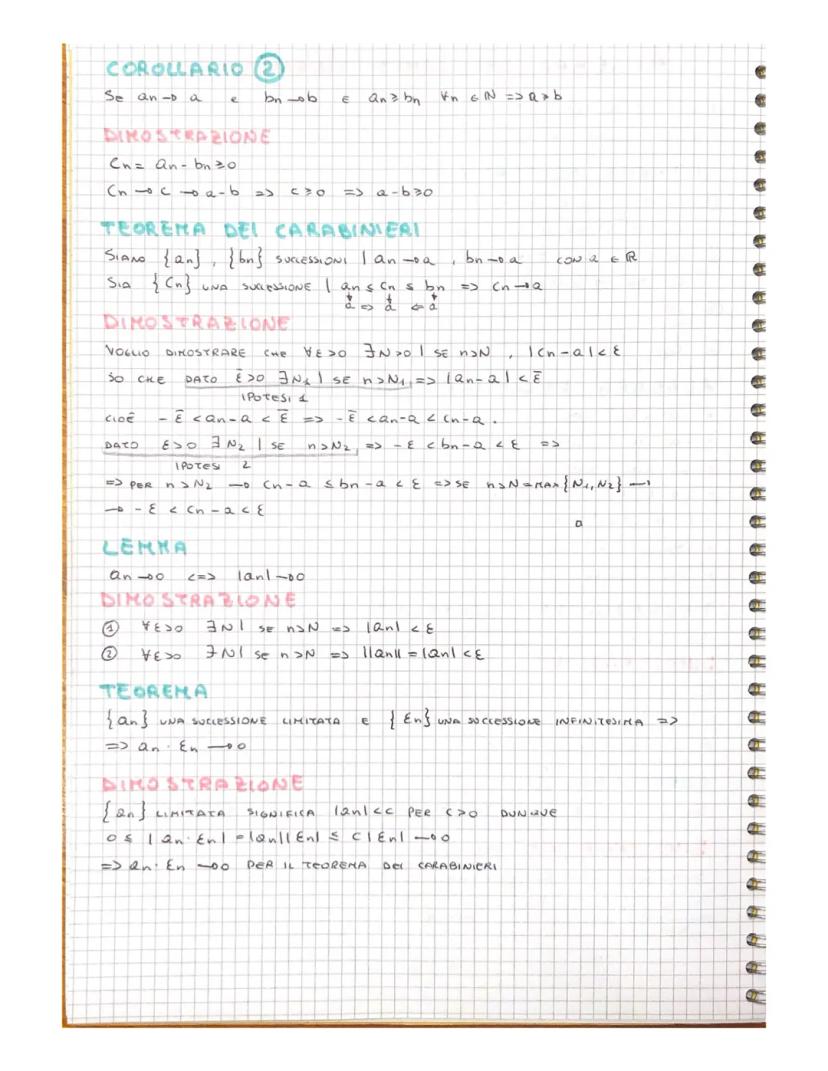 COROLLARIO ②
Se an → a e bn → b E an ≥ bn ∀n ∈ ℕ => a ≥ b
DIMOSTRAZIONE
Cn = an - bn ≥ 0
Cn → c → a-b => c ≥ 0 => a-b ≥ 0
TEOREMA DEI CARABINIERI
SIANO {an}, {bn} SUCCESSIONI | an → a, bn → a CON a ∈ ℝ
SIA {Cn} UNA SUCCESSIONE | an ≤ Cn ≤ bn => Cn → a
↓ ↓ ↓
a => a <= a
DIMOSTRAZIONE
VOGLIO DIMOSTRARE CHE ∀ε>0 ∃N>0 | SE n>N, |Cn-a|<ε
SO CHE DATO ε̄>0 ∃N₁ | SE n>N₁ => |an-a| < ε̄
IPOTESI 1
CIOÈ -ε̄ < an-a < ε̄ => -ε̄ < an-a ≤ Cn-a.
DATO ε>0 ∃N₂ | SE n>N₂ => -ε < bn-a < ε =>
IPOTESI 2
=> PER n>N₂ → Cn-a ≤ bn-a < ε => SE n>N=MAX{N₁,N₂} →
→ -ε < Cn-a < ε
□
LEMMA
an → 0 <=> |an| → 0
DIMOSTRAZIONE
① ∀ε>0 ∃N | SE n>N => |an| < ε
② ∀ε>0 ∃N | SE n>N => ||an|| = |an| < ε
TEOREMA
{an} UNA SUCCESSIONE LIMITATA E {εn} UNA SUCCESSIONE INFINITESIMA =>
=> an · εn → 0
DIMOSTRAZIONE
{an} LIMITATA SIGNIFICA |an|<c PER c>0 DUNQUE
0 ≤ |an·εn| = |an||εn| ≤ c|εn| → 0
=> an·εn → 0 PER IL TEOREMA DEI CARABINIERI